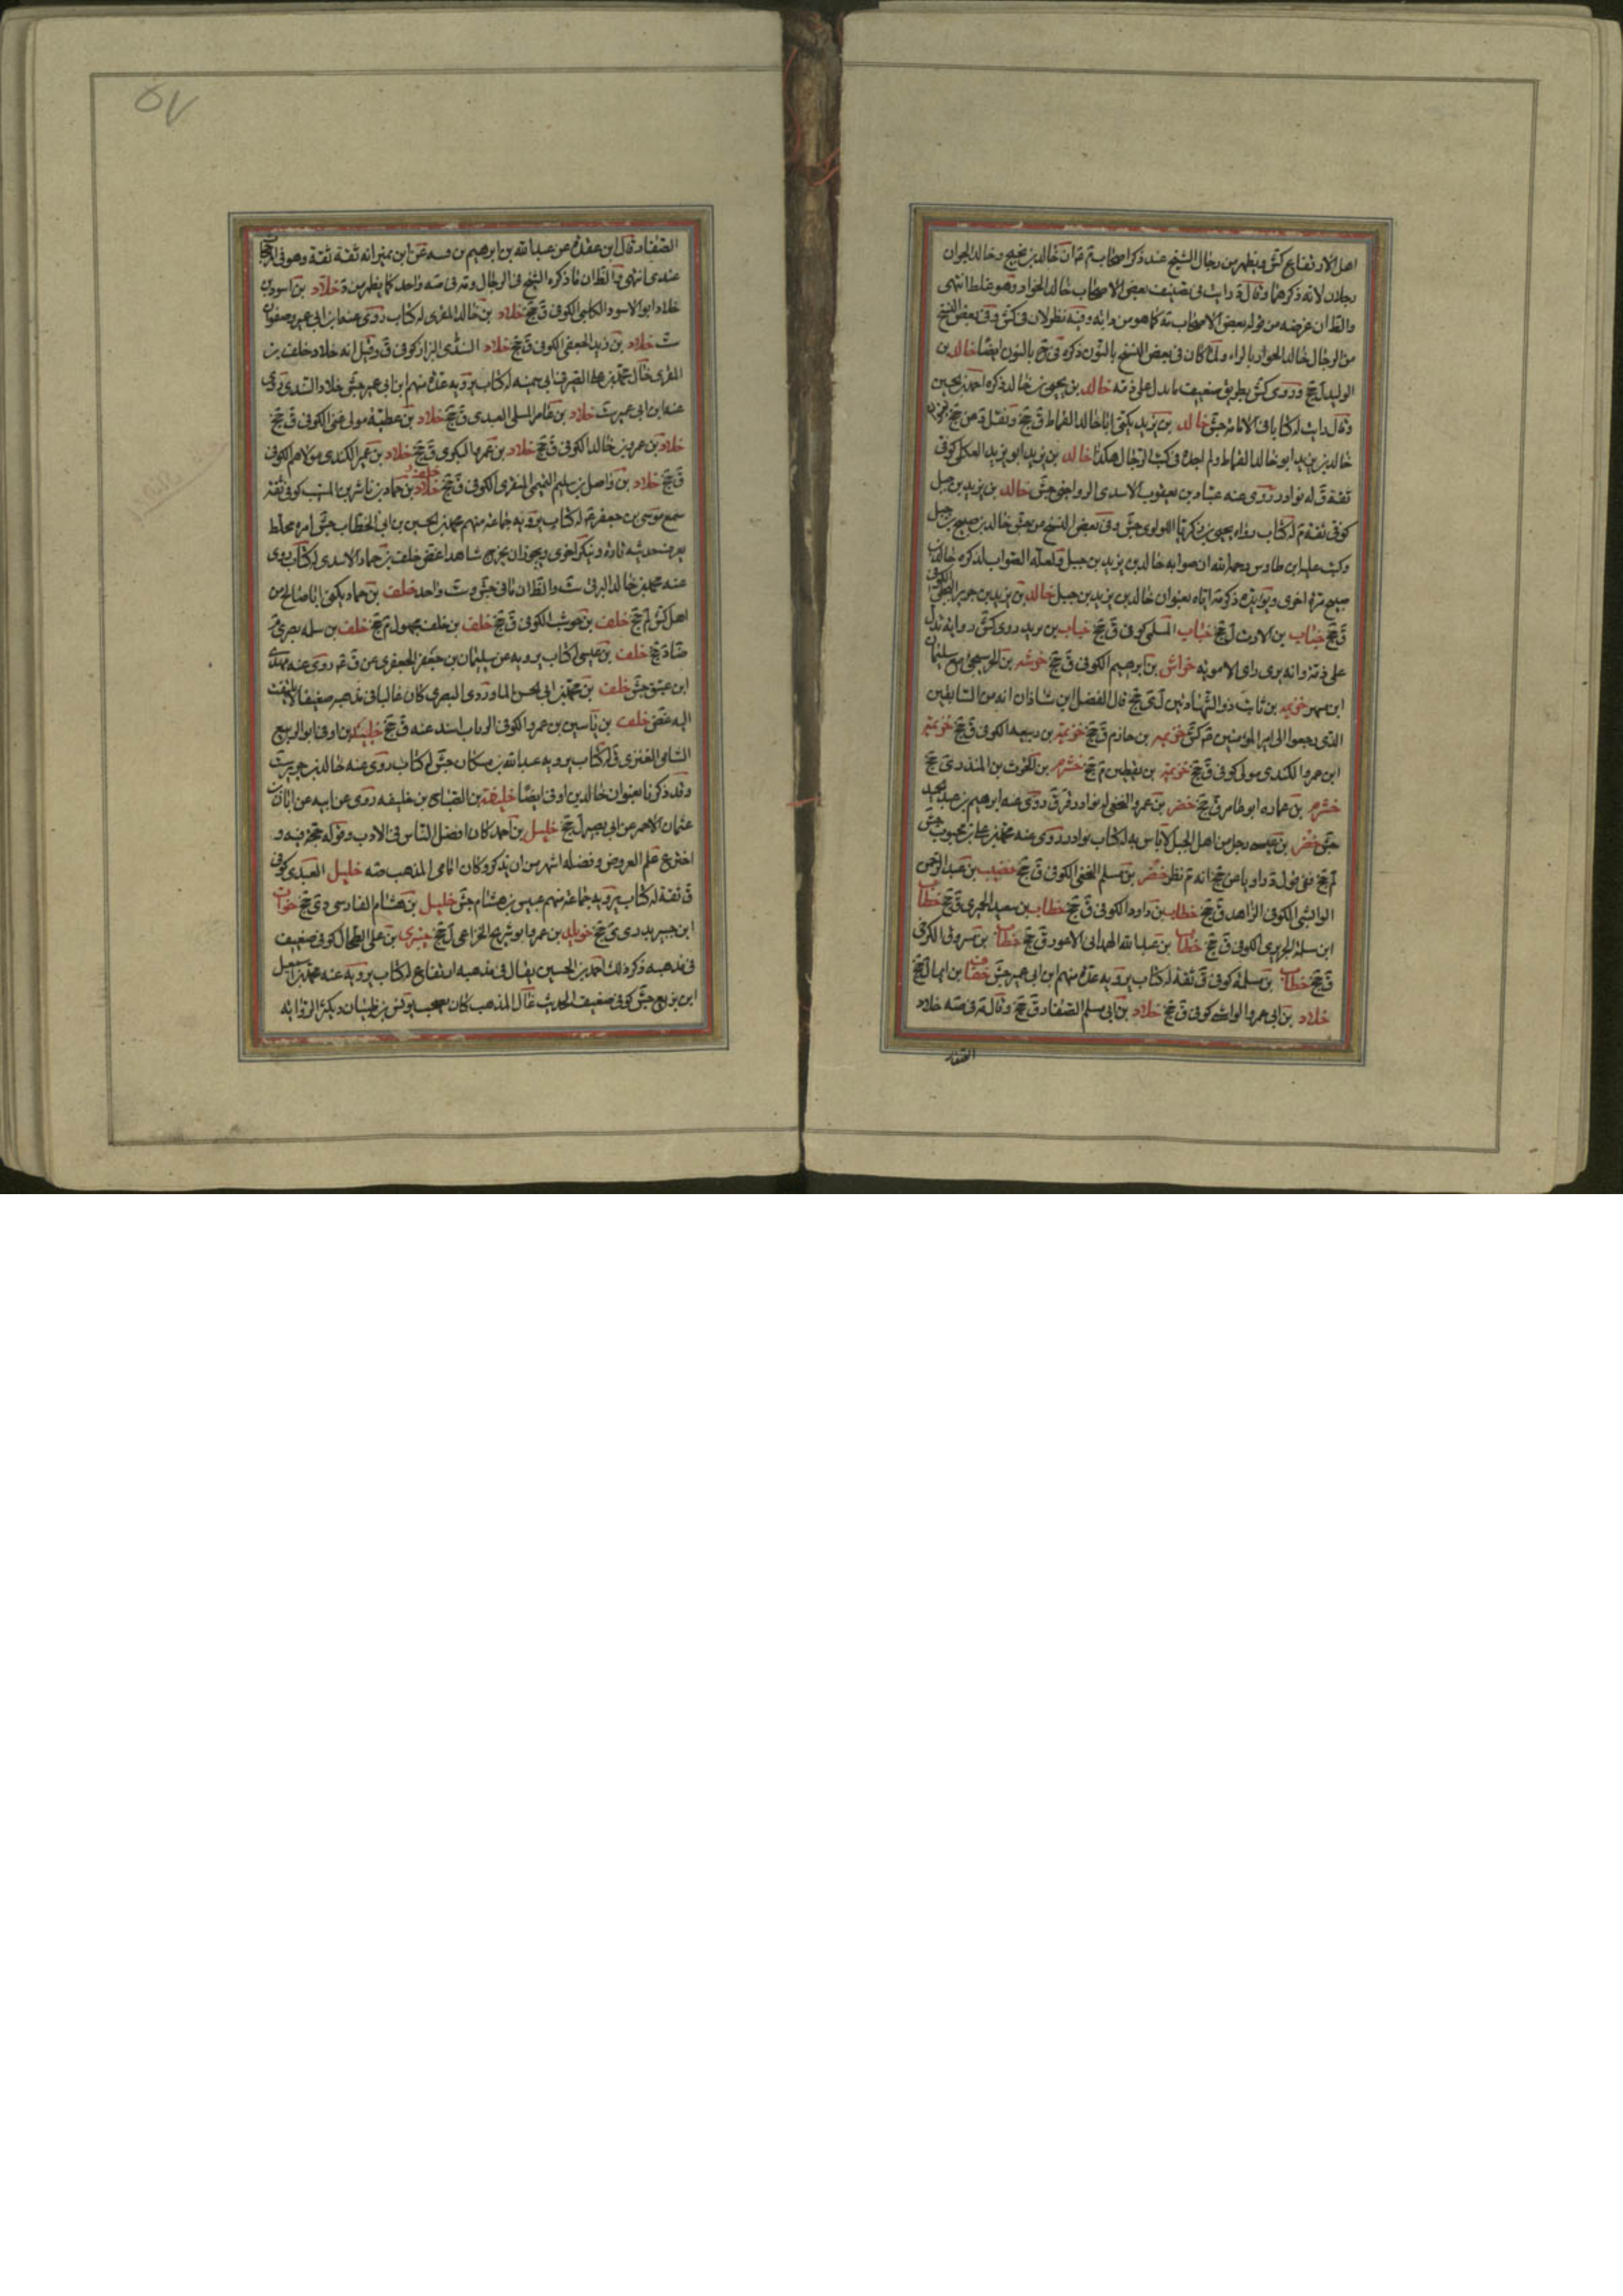 اهل الارتفاع كش ويظهر من رجال الشيخ عند ذكر اصحاب م ان خالد بن نجيح وخالد الجوان
رجلان لانه ذكرهما وقال د رايت فى تصنيف بعض الاصحاب خالد الجواد وهو غلط انتهى
والظ ان غرضه من قوله بعض الاصحاب مه كما هو من دابه وفيه نظر لان فى كش وفى بعض النسخ
من الرجال خالد الجواز بالزاء وان كان فى بعض النسخ بالنون ذكره فى ح بالنون ايضا خالد بن
الوليد ل جخ وروى كش بطريق ضعيف ما يدل على ذمه خالد بن يحيى بن خالد ذكره احمد بن الحسين
وقال رايت له كتابا فى الامامة جش خالد بن يزيد يكنى ابا خالد القماط ق جخ ونقل د عن جخ
خالد بن يزيد ابو خالد القماط ولم اجده فى كتب الرجال هكذا خالد بن يزيد ابو يزيد العكلى كوفى
ثقة ق له نوادر روى عنه عباد بن يعقوب الاسدى الرواجنى جش خالد بن يزيد بن جبل
كوفى ثقة م له كتاب رواه يحيى بن زكريا اللؤلؤى جش وفى بعض النسخ من جش خالد بن صبيح بن جبل
وكتب عليه ابن طاوس رحمه الله ان صوابه خالد بن يزيد بن جبل ولعله الصواب لذكره خالد بن
صبيح مرة اخرى ويؤيده ذكر مه اياه بعنوان خالد بن يزيد بن جبل خالد بن يزيد بن جرير البجلى الكوفى
ق جخ خباب بن الارت ل جخ خباب السلمى كوفى ق جخ خباب بن يزيد روى كش رواية تدل
على ذمه وانه يرى راى الاموية خراش بن ابرهيم الكوفى ق جخ خرشه بن الحر
ابن مسهر خزيمه بن ثابت ذو الشهادتين ل ى جخ قال الفضل ابن شاذان انه من السابقين
الذى رجعوا الى امير المؤمنين ع كش خزيمه بن حازم ق جخ خزيمه بن ربيعه الكوفى ق جخ خزيمه
ابن عمرو الكندى مولى كوفى ق جخ خزيمه بن يقطين م جخ خشرم بن الحرث بن المنذر ى جخ
خشرم بن عماره ابو طاهر ق جخ خضر بن عمرو النخعى له نوادر قر ق روى عنه ابرهيم بن عبد الحميد
جش خضر بن عيسى رجل من اهل الجبل لا باس به له كتاب نوادر روى عنه محمد بن على بن محبوب جش
لم جخ ففى قول د راويا عن جخ انه م نظر خضر بن مسلم النخعى الكوفى ق جخ خضيب بن عبد الرحمن
الوابشى الكوفى الزاهد ق جخ خطاب بن داود الكوفى ق جخ خطاب بن سعيد الحميرى ق جخ خطاب
ابن سلمة الجريرى الكوفى ق جخ خطاب بن عبد الله الهمدانى الاعور ق جخ خطاب بن مسروق الكرفى
ق جخ خطاب بن مسلمة كوفى ق ثقة له كتاب يرويه عدة منهم ابن ابى عمير جش خفاف بن ايما ل جخ
خلاد بن ابى عمرو الوابشى كوفى ق جخ خلاد بن ابى مسلم الصفار ق جخ وقال قر فى مه خلاد
الصفار
٥٧
الصفار وقال ابن عقده عن عبد الله بن ابرهيم بن قتيبه عن ابن نمير انه ثقة ثقة وهو فى المرجحات
عندى انتهى والظ ان ما ذكره الشيخ فى الرجال وقر فى مه واحد كما يظهر من د خلاد بن اسود بن
خلاد ابو الاسود الكلبى الكوفى ق جخ خلاد بن خالد المقرى له كتاب روى عنه ابن ابى عمير وصفوان
ست خلاد بن زيد الجعفى الكوفى ق جخ خلاد السندى البزاز كوفى ق وقيل انه خلاد خلف بن
المقرى خال محمد بن على الصيرفى ابى سمينه له كتاب يرويه عدة منهم ابن ابى عمير جش خلاد السندى روى
عنه ابن ابى عمير ست خلاد بن عامر المسلى العبدى ق جخ خلاد بن عطية مولى غنى الكوفى ق جخ
خلاد بن عمرو بن خالد الكوفى ق جخ خلاد بن عمرو البكرى ق جخ خلاد بن عمير الكندى مولاهم الكوفى
ق جخ خلاد بن واصل بن سليم التميمى المنقرى الكوفى ق جخ خلف بن حماد بن ناشر بن المسيب كوفى ثقة
سمع موسى بن جعفر ع له كتاب يرويه جماعة منهم محمد بن الحسين بن ابى الخطاب جش امره مختلط
يعرف حديثه تارة وينكر اخرى ويجوز ان يخرج شاهدا غض خلف بن حماد الاسدى له كتاب روى
عنه محمد بن خالد البرقى ست والظ ان ما فى جش وست واحد خلف بن حماد يكنى ابا صالح من
اهل كش لم جخ خلف بن حوشب الكوفى ق جخ خلف بن خلف مجهول م جخ خلف بن سلمه بصرى
ضا د جخ خلف بن عيسى له كتاب يرويه عن سليمان بن جعفر الجعفرى عن ق ع روى عنه
ابن عتيق جش خلف بن محمد بن ابى الحسن الماوردى البصرى كان غاليا فى مذهبه ضعيفا لا يلتفت
اليه غض خلف بن ياسين بن عمرو الكوفى الزيات اسند عنه ق جخ خليد بن اوفى ابو الربيع
الشامى العنزى ق له كتاب يرويه عبد الله بن مسكان جش له كتاب روى عنه خالد بن جرير ست
وقد ذكرنا بعنوان خالد بن اوفى ايضا خليفة بن الصباح بن خليفه روى عن ابيه عن ابان بن
عثمان الاحمر عن ابى بصير لم جخ خليل بن احمد كان افضل الناس فى الادب وقوله حجة فيه و
اخترع علم العروض وفضله اشهر من ان يذكر وكان امامى المذهب مه خليل العبدى كوفى
ق ثقة له كتاب يرويه جماعة منهم عبيس بن هشام جش خليل بن هشام الفارسى دى جخ خوات
ابن جبير بدرى ى جخ خويلد بن عمرو ابو شريح الخزاعى ل جخ خيبرى بن على الطحان كوفى ضعيف
فى مذهبه ذكر ذلك احمد بن الحسين يقال فى مذهبه ارتفاع له كتاب يرويه عنه محمد بن اسمعيل
ابن بزيع جش كوفى ضعيف الحديث غال المذهب كان يصحب يونس بن ظبيان ويكثر الرواية